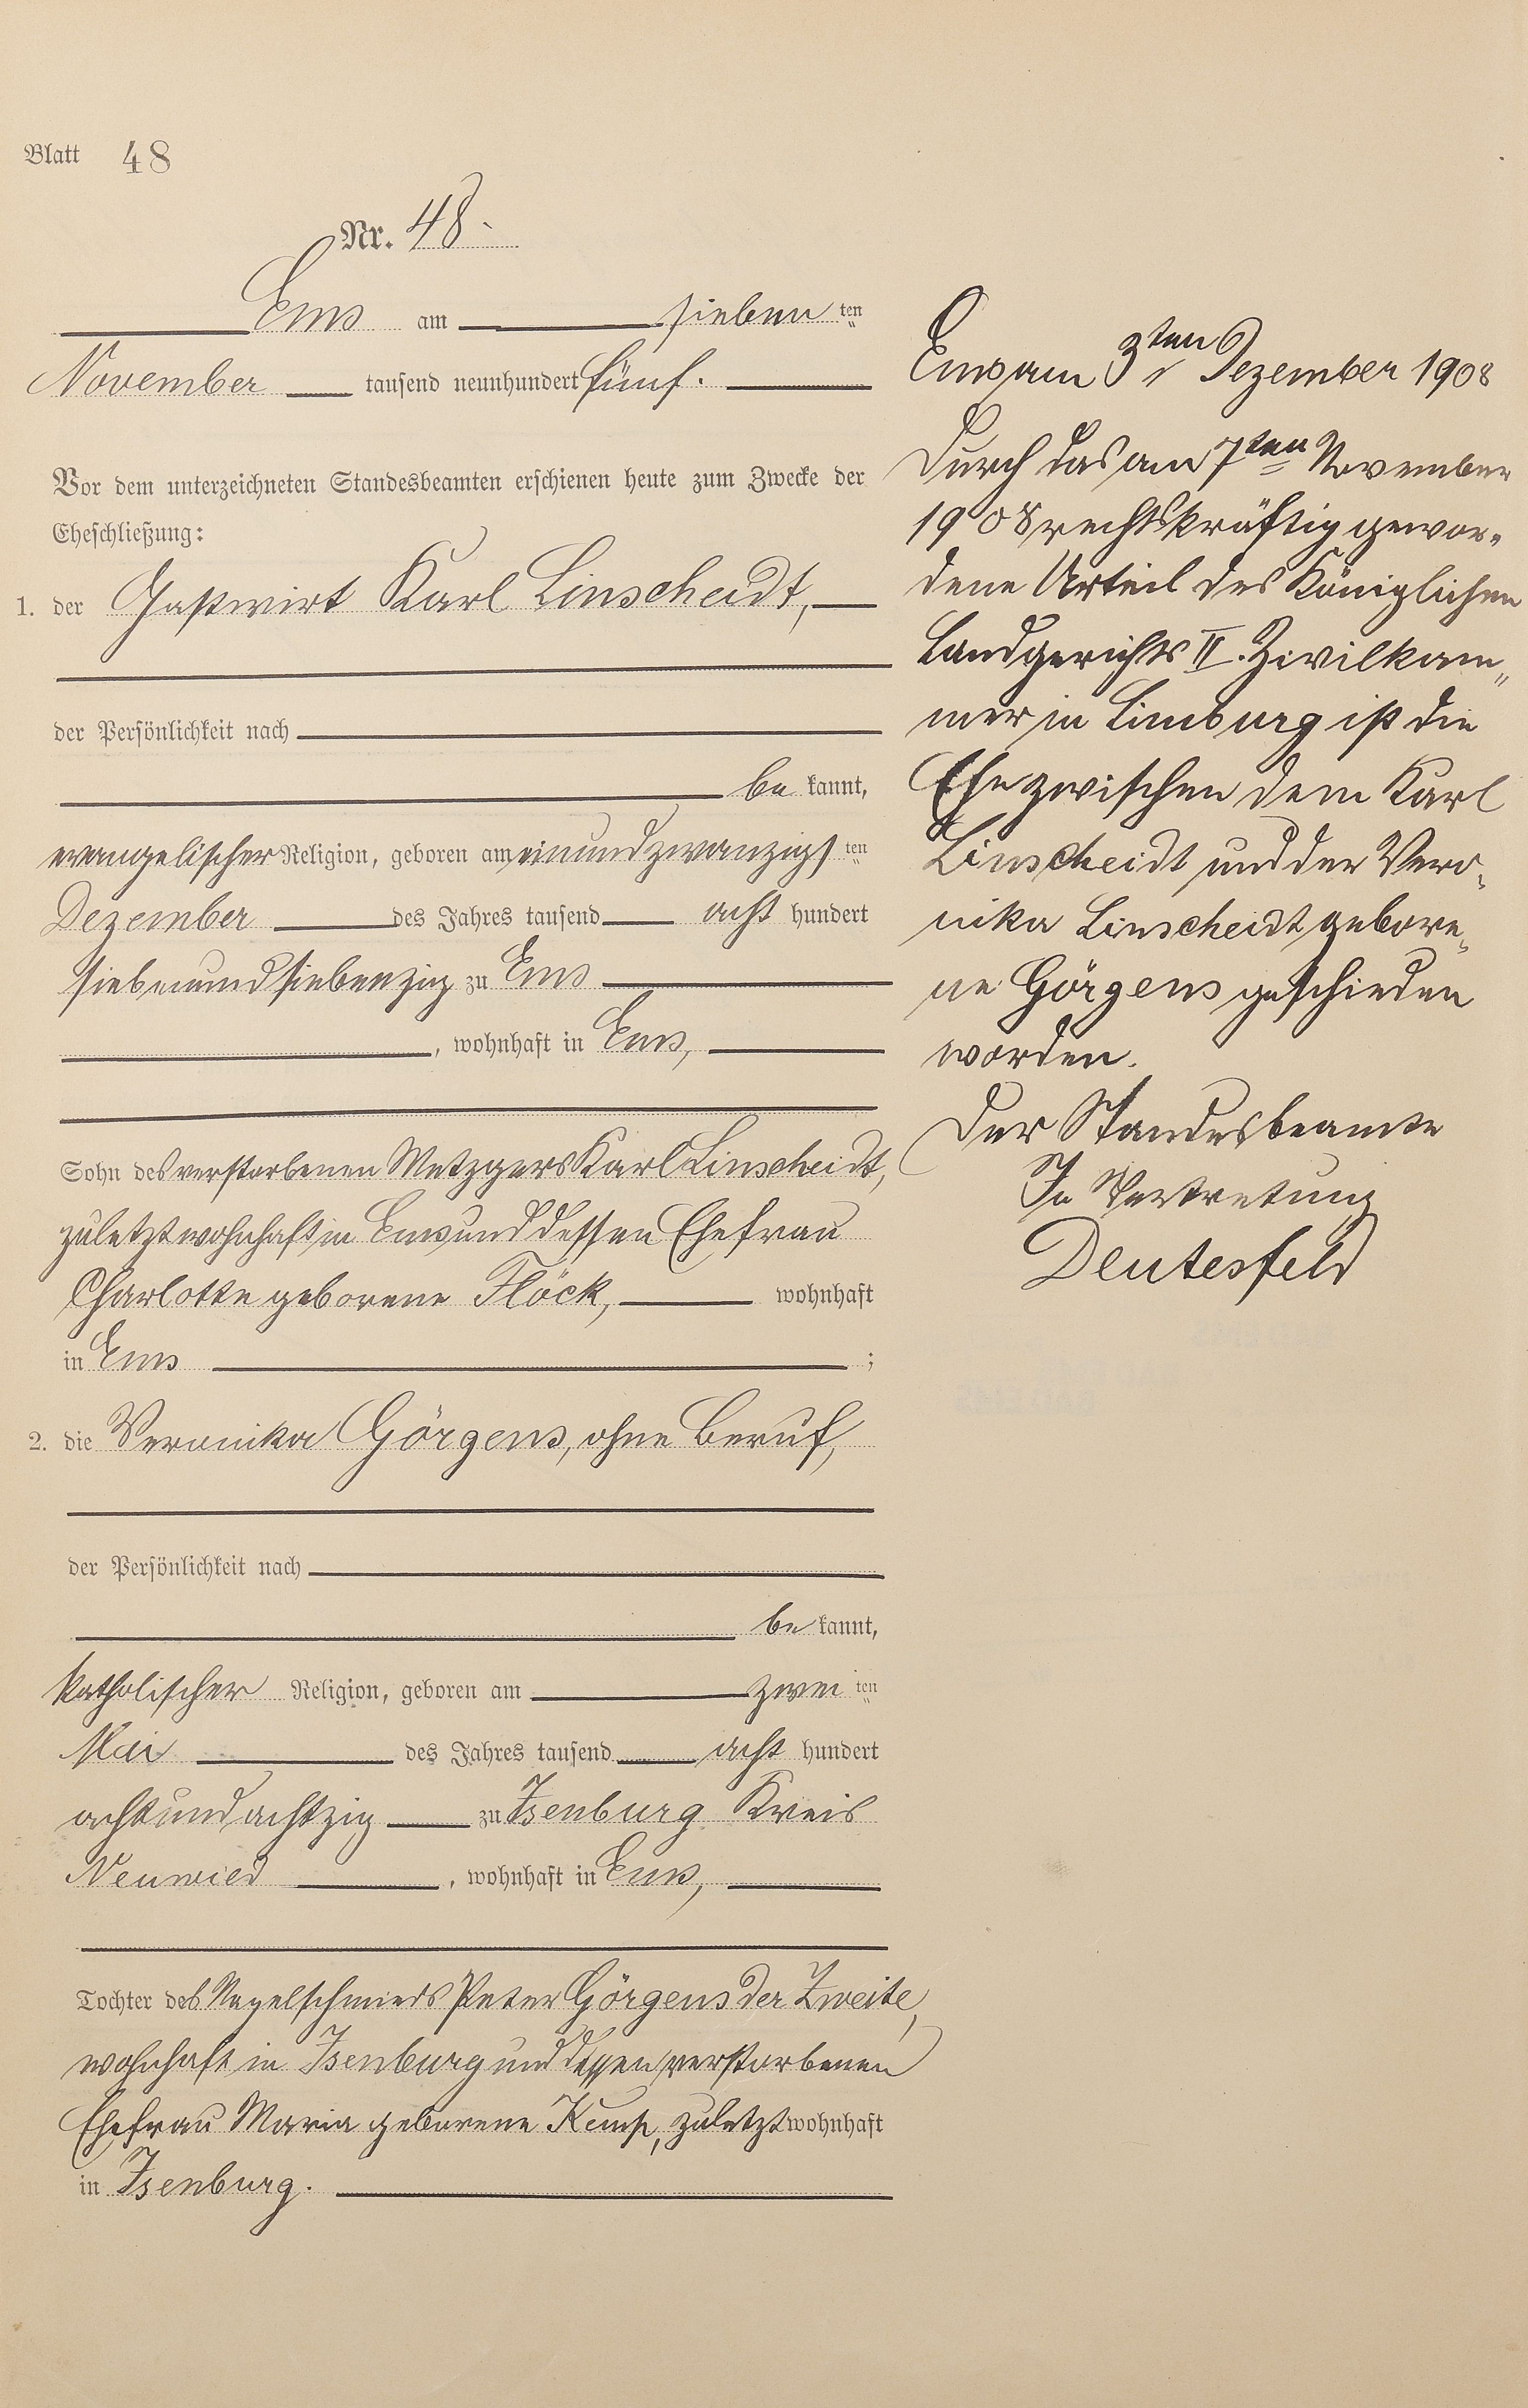 Blatt 48
Nr. 48.
Ems am siebenten
November tausend neunhundert fünf.
Vor dem unterzeichneten Standesbeamten erschienen heute zum Zwecke der
Eheschließung:
1. der Gastwirt Karl Linscheidt,
der Persönlichkeit nach
be kannt,
evangelischer Religion, geboren am einundzwanzigsten
Dezember des Jahres tausend acht hundert
siebenundsiebenzig zu Ems
, wohnhaft in Ems,
Sohn des verstorbenen Metzgers Karl Linscheidt,
zuletzt wohnhaft in Ems und dessen Ehefrau
Charlotte geborene Flöck, wohnhaft
in Ems ;
2. die Veronika Görgens, ohne Beruf,
der Persönlichkeit nach
be kannt,
katholischer Religion, geboren am zweiten
Mai des Jahres tausend acht hundert
achtundachtzig zu Isenburg Kreis
Neuwied , wohnhaft in Ems,
Tochter des Nagelschmieds Peter Görgens der Zweite,
wohnhaft in Isenburg und dessen verstorbenen
Ehefrau Maria geborene zuletzt wohnhaft
in Isenburg.
Ems am 3ten Dezember 1908
Durch das am 7ten November
1908 rechtskräftig gewor-
dene Urteil des Königlichen
Landgerichts II. Zivilkam-
mer in Limburg ist die
Ehe zwischen dem Karl
Linscheidt und der Vero-
nika Linscheidt gebore-
ne Görgens geschieden
worden.
Der Standesbeamte
In Vertretung
Deutesfeld